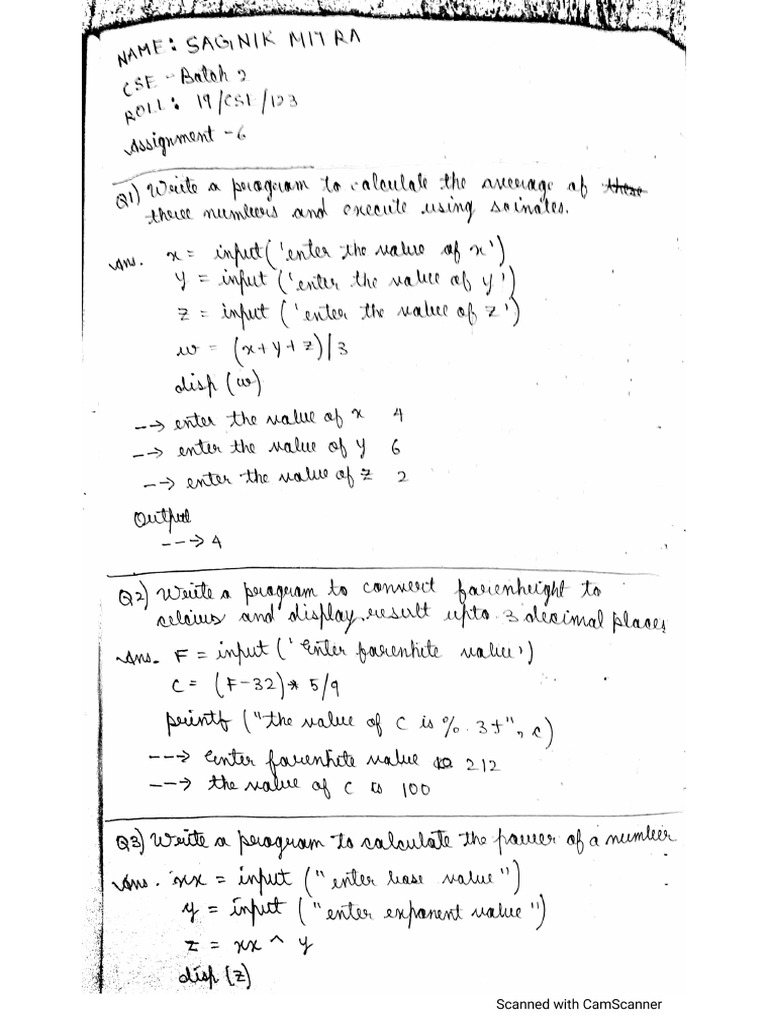 NAME: SAGNIK MITRA
CSE - Batch 2
ROLL: 19/CSE/123
Assignment - 6
Q1) Write a program to calculate the average of these
three numbers and execute using
Ans. x = input('enter the value of x')
y = input ('enter the value of y')
z = input ('enter the value of z')
w = (x+y+z)/3
disp (w)
--> enter the value of x 4
--> enter the value of y 6
--> enter the value of z 2
Output
---> 4
Q2) Write a program to convert farenheight to
celcius and display result upto 3 decimal places
Ans. F = input ('Enter farenhite value')
C = (F-32)* 5/9
printf ("the value of C is %.3f", c)
---> Enter farenhite value 212
---> the value of C is 100
Q3) Write a program to calculate the power of a number
Ans. xx = input ("enter base value")
y = input ("enter exponent value")
z = xx ^ y
disp (z)
Scanned with CamScanner